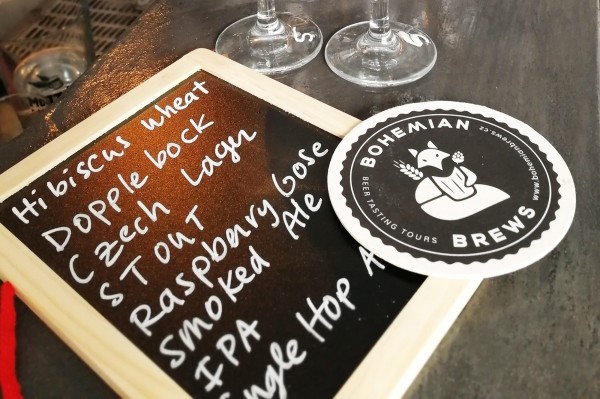 Hibiscus wheat
Dopple bock
Czech Lager
STOUT
Raspberry Gose
Smoked Ale
IPA
Hop A
BOHEMIAN
BREWS
BEER TASTING TOURS
www.bohemianbrews.cz
5